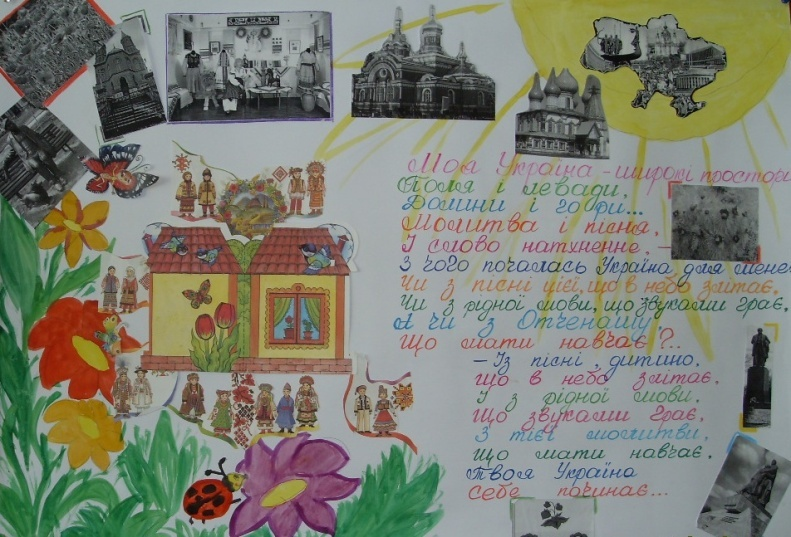 Моя Україна – широкі простори
Поля і левади,
Долини і гори...
Молитва і пісня,
І слово натхненне, –
З чого почалась Україна для мене
Чи з пісні цієї, що в небо злітає,
Чи з рідної мови, що звуками грає,
А чи з Отченашу,
Що мати навчає?..
– Із пісні, дитино,
Що в небо злітає,
І з рідної мови,
Що звуками грає,
З тієї молитви,
Що мати навчає,
Твоя Україна
Себе починає...